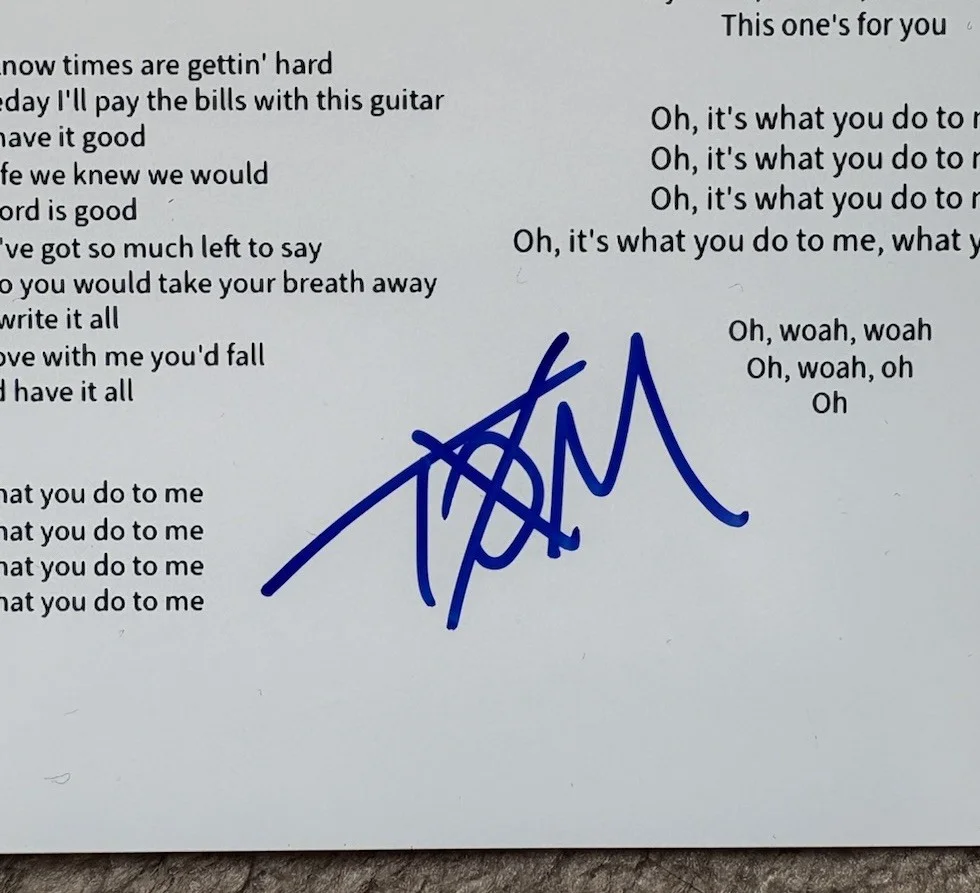 now times are gettin' hard
eday I'll pay the bills with this guitar
have it good
fe we knew we would
ord is good
've got so much left to say
o you would take your breath away
write it all
ove with me you'd fall
have it all
hat you do to me
hat you do to me
hat you do to me
hat you do to me
This one's for you
Oh, it's what you do to
Oh, it's what you do to
Oh, it's what you do to
Oh, it's what you do to me, what y
Oh, woah, woah
Oh, woah, oh
Oh
TOM